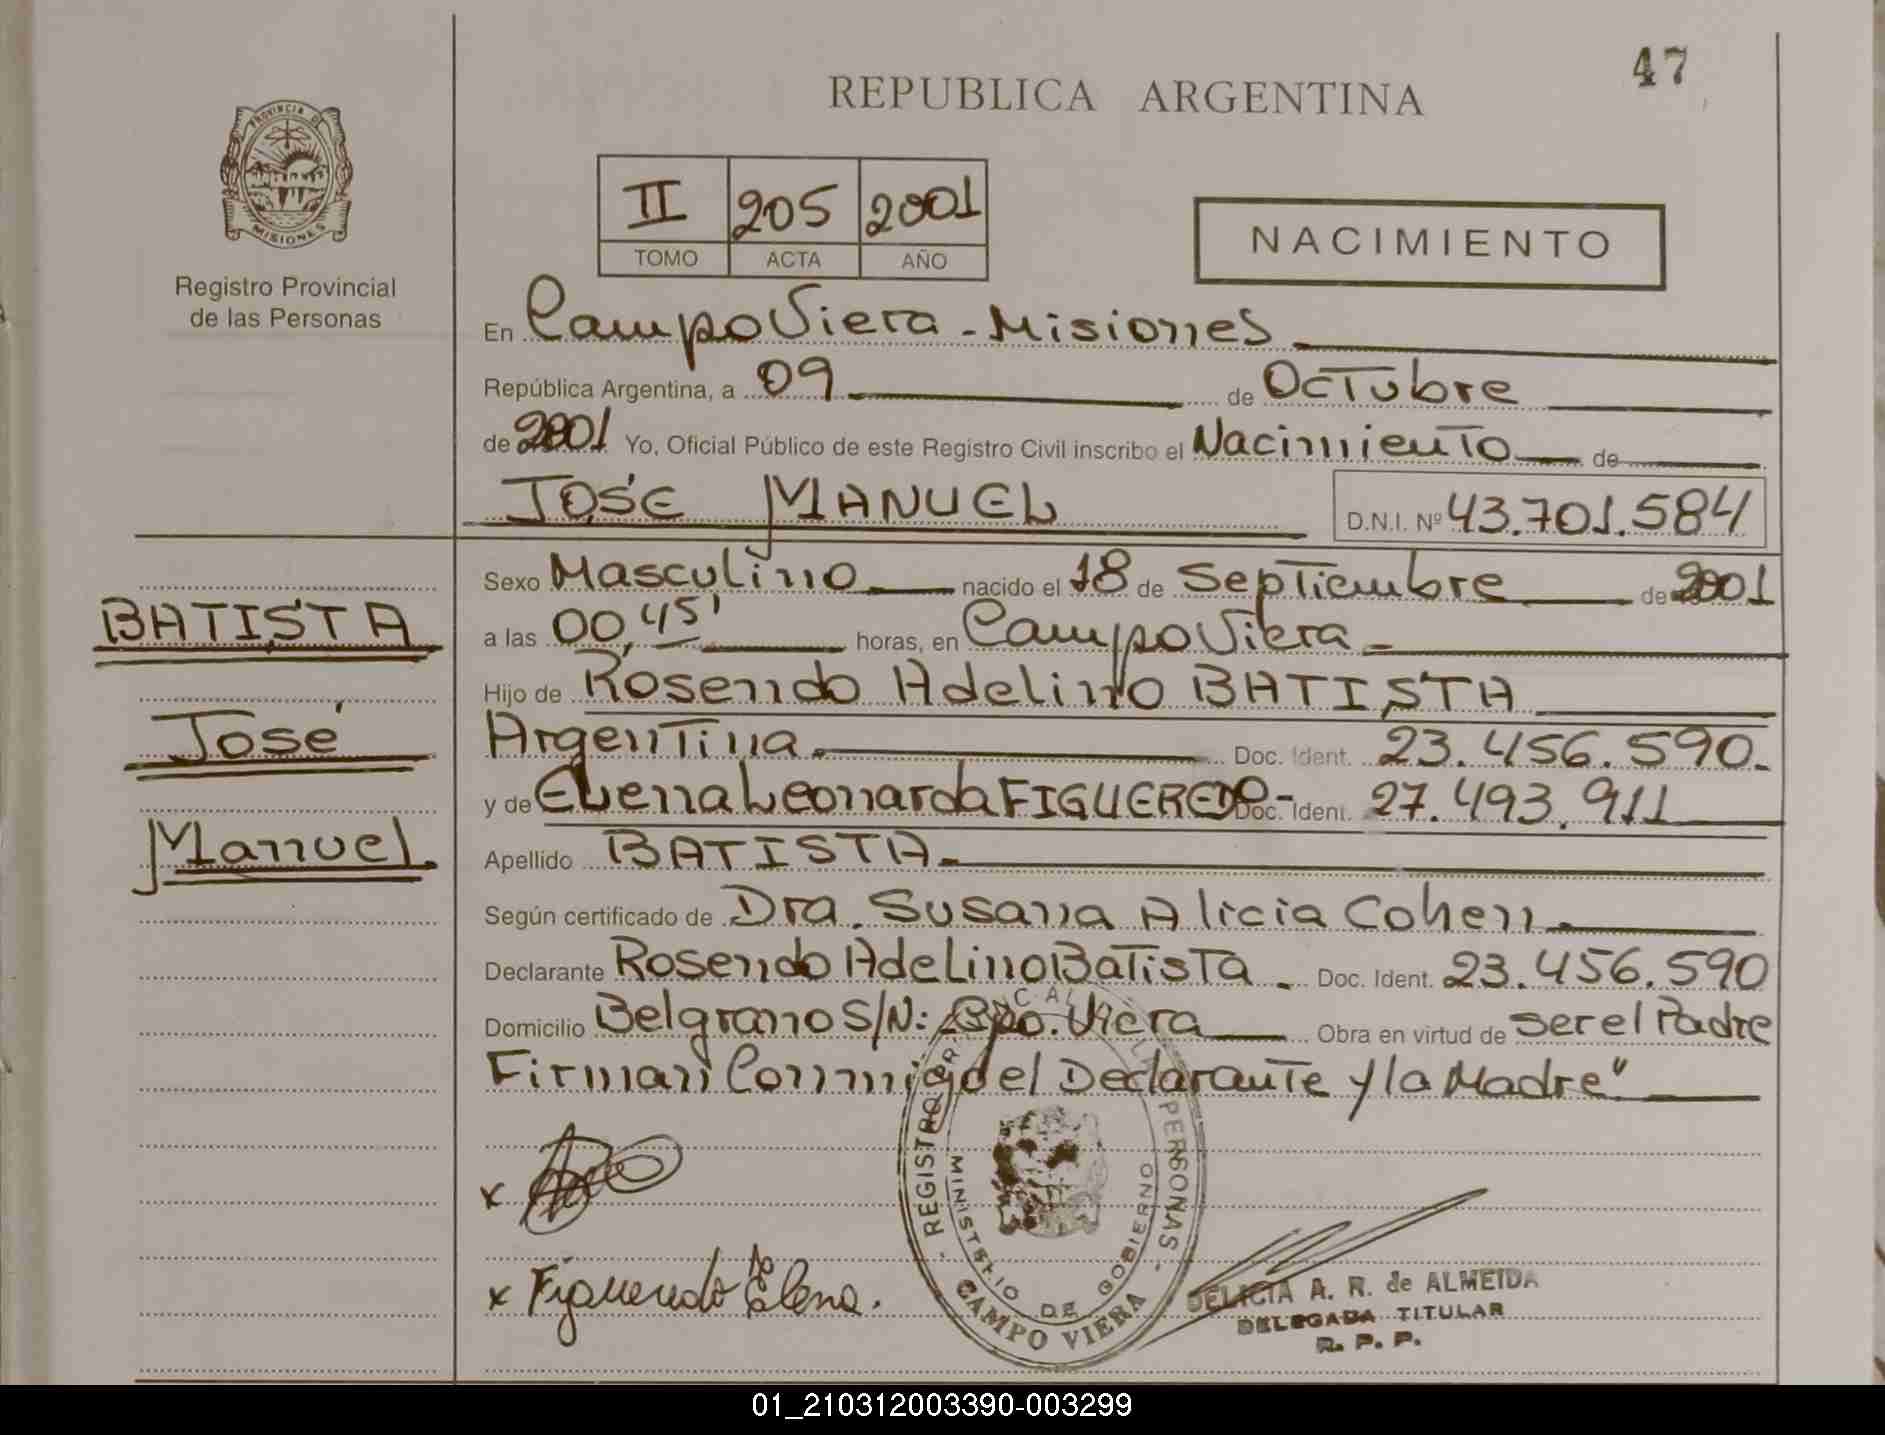 47
REPUBLICA ARGENTINA
PROVINCIA DE
MISIONES
Registro Provincial
de las Personas
II 205 2001
TOMO ACTA AÑO
NACIMIENTO
En Campo Viera - Misiones
República Argentina, a 09 de Octubre
de 2001 Yo, Oficial Público de este Registro Civil inscribo el Nacimiento de
JOSÉ MANUEL D.N.I. Nº 43.701.584
Sexo Masculino nacido el 18 de Septiembre de 2001
BATISTA
a las 00,45' horas, en Campo Viera
Hijo de Rosendo Adelino BATISTA
José
Argentina. Doc. Ident. 23.456.590.
y de ELena Leonarda FIGUEREDO- Doc. Ident. 27.493.911
Manuel.
Apellido BATISTA
Según certificado de Dra. Susana Alicia Cohen.
Declarante Rosendo AdeLino Batista. Doc. Ident. 23.456.590
Domicilio Belgrano S/N: Cpo. Viera Obra en virtud de ser el Padre
Firman Conmigo el Declarante y la Madre"
x
x Figueredo Elena.
REGISTRO PERSONAS
MINISTERIO DE GOBIERNO
CAMPO VIERA
DELICIA A. R. de ALMEIDA
DELEGADA TITULAR
R. P. P.
01_210312003390-003299